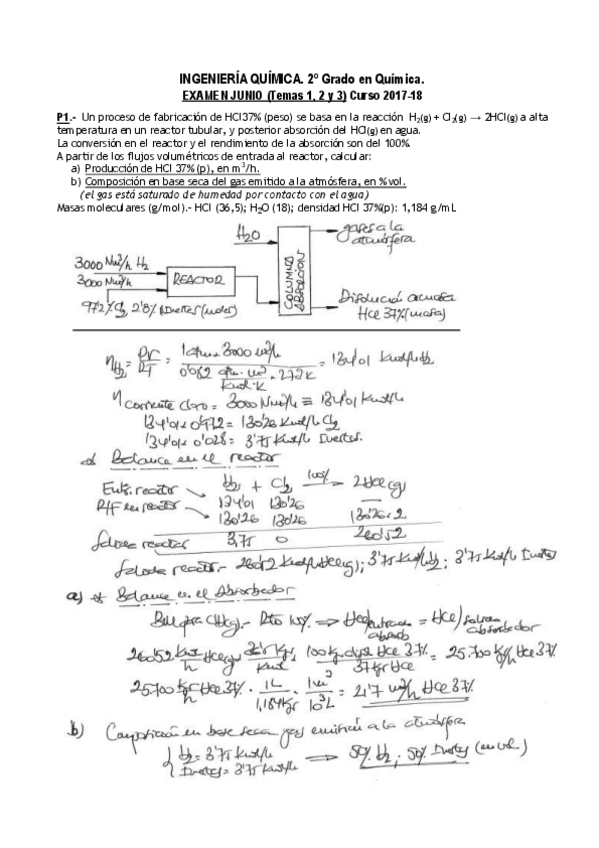 INGENIERÍA QUÍMICA. 2º Grado en Química.
EXAMEN JUNIO (Temas 1, 2 y 3) Curso 2017-18
P1.- Un proceso de fabricación de HCl37% (peso) se basa en la reacción H₂(g) + Cl₂(g) → 2HCl(g) a alta
temperatura en un reactor tubular, y posterior absorción del HCl(g) en agua.
La conversión en el reactor y el rendimiento de la absorción son del 100%.
A partir de los flujos volumétricos de entrada al reactor, calcular:
a) Producción de HCl 37% (p), en m³/h.
b) Composición en base seca del gas emitido a la atmósfera, en % vol.
(el gas está saturado de humedad por contacto con el agua)
Masas moleculares (g/mol).- HCl (36,5); H₂O (18); densidad HCl 37%(p): 1,184 g/mL
H₂O
gases a la
atmósfera
3000 Nm³/h H₂
3000 Nm³/h
REACTOR
COLUMNA
ABSORCION
97'2% Cl₂, 2'8% Inertes (moles)
Disolución acuosa
HCl 37% (masa)
n H₂ = PV/RT = 1 atm × 3000 m³/h / 0'082 atm·m³/Kmol·K × 273 K = 134'01 Kmol/h H₂
n corriente cloro = 3000 Nm³/h ≡ 134'01 Kmol/h
134'01 × 0'972 = 130'26 Kmol/h Cl₂
134'01 × 0'028 = 3'75 Kmol/h Inertes.
Balance en el reactor
H₂ + Cl₂ 100% → 2HCl(g)
Entr. reactor → 134'01 130'26 —
Rxn en reactor → 130'26 130'26 130'26×2
Salida reactor 3,75 0 260'52
Salida reactor.- 260'52 Kmol/h HCl(g); 3'75 Kmol/h H₂; 3'75 Kmol/h Inertes
a) Balance en el Absorbedor
HCl(g).- Rto 100% ⇒ HCl/entrada absorb = HCl/salida absorbedor
260'52 Kmol HCl(g)/h · 36'5 Kg/Kmol · 100 Kg disol HCl 37%/37 Kg HCl = 25.700 Kg/h HCl 37%
25.700 Kg HCl 37%/h · 1L/1,184Kg · 1m³/10³L = 21'7 m³/h HCl 37%
b) Composición en base seca gas emitido a la atmósfera
H₂ = 3'75 Kmol/h
Inertes = 3'75 Kmol/h → 50% H₂; 50% Inertes (en vol)